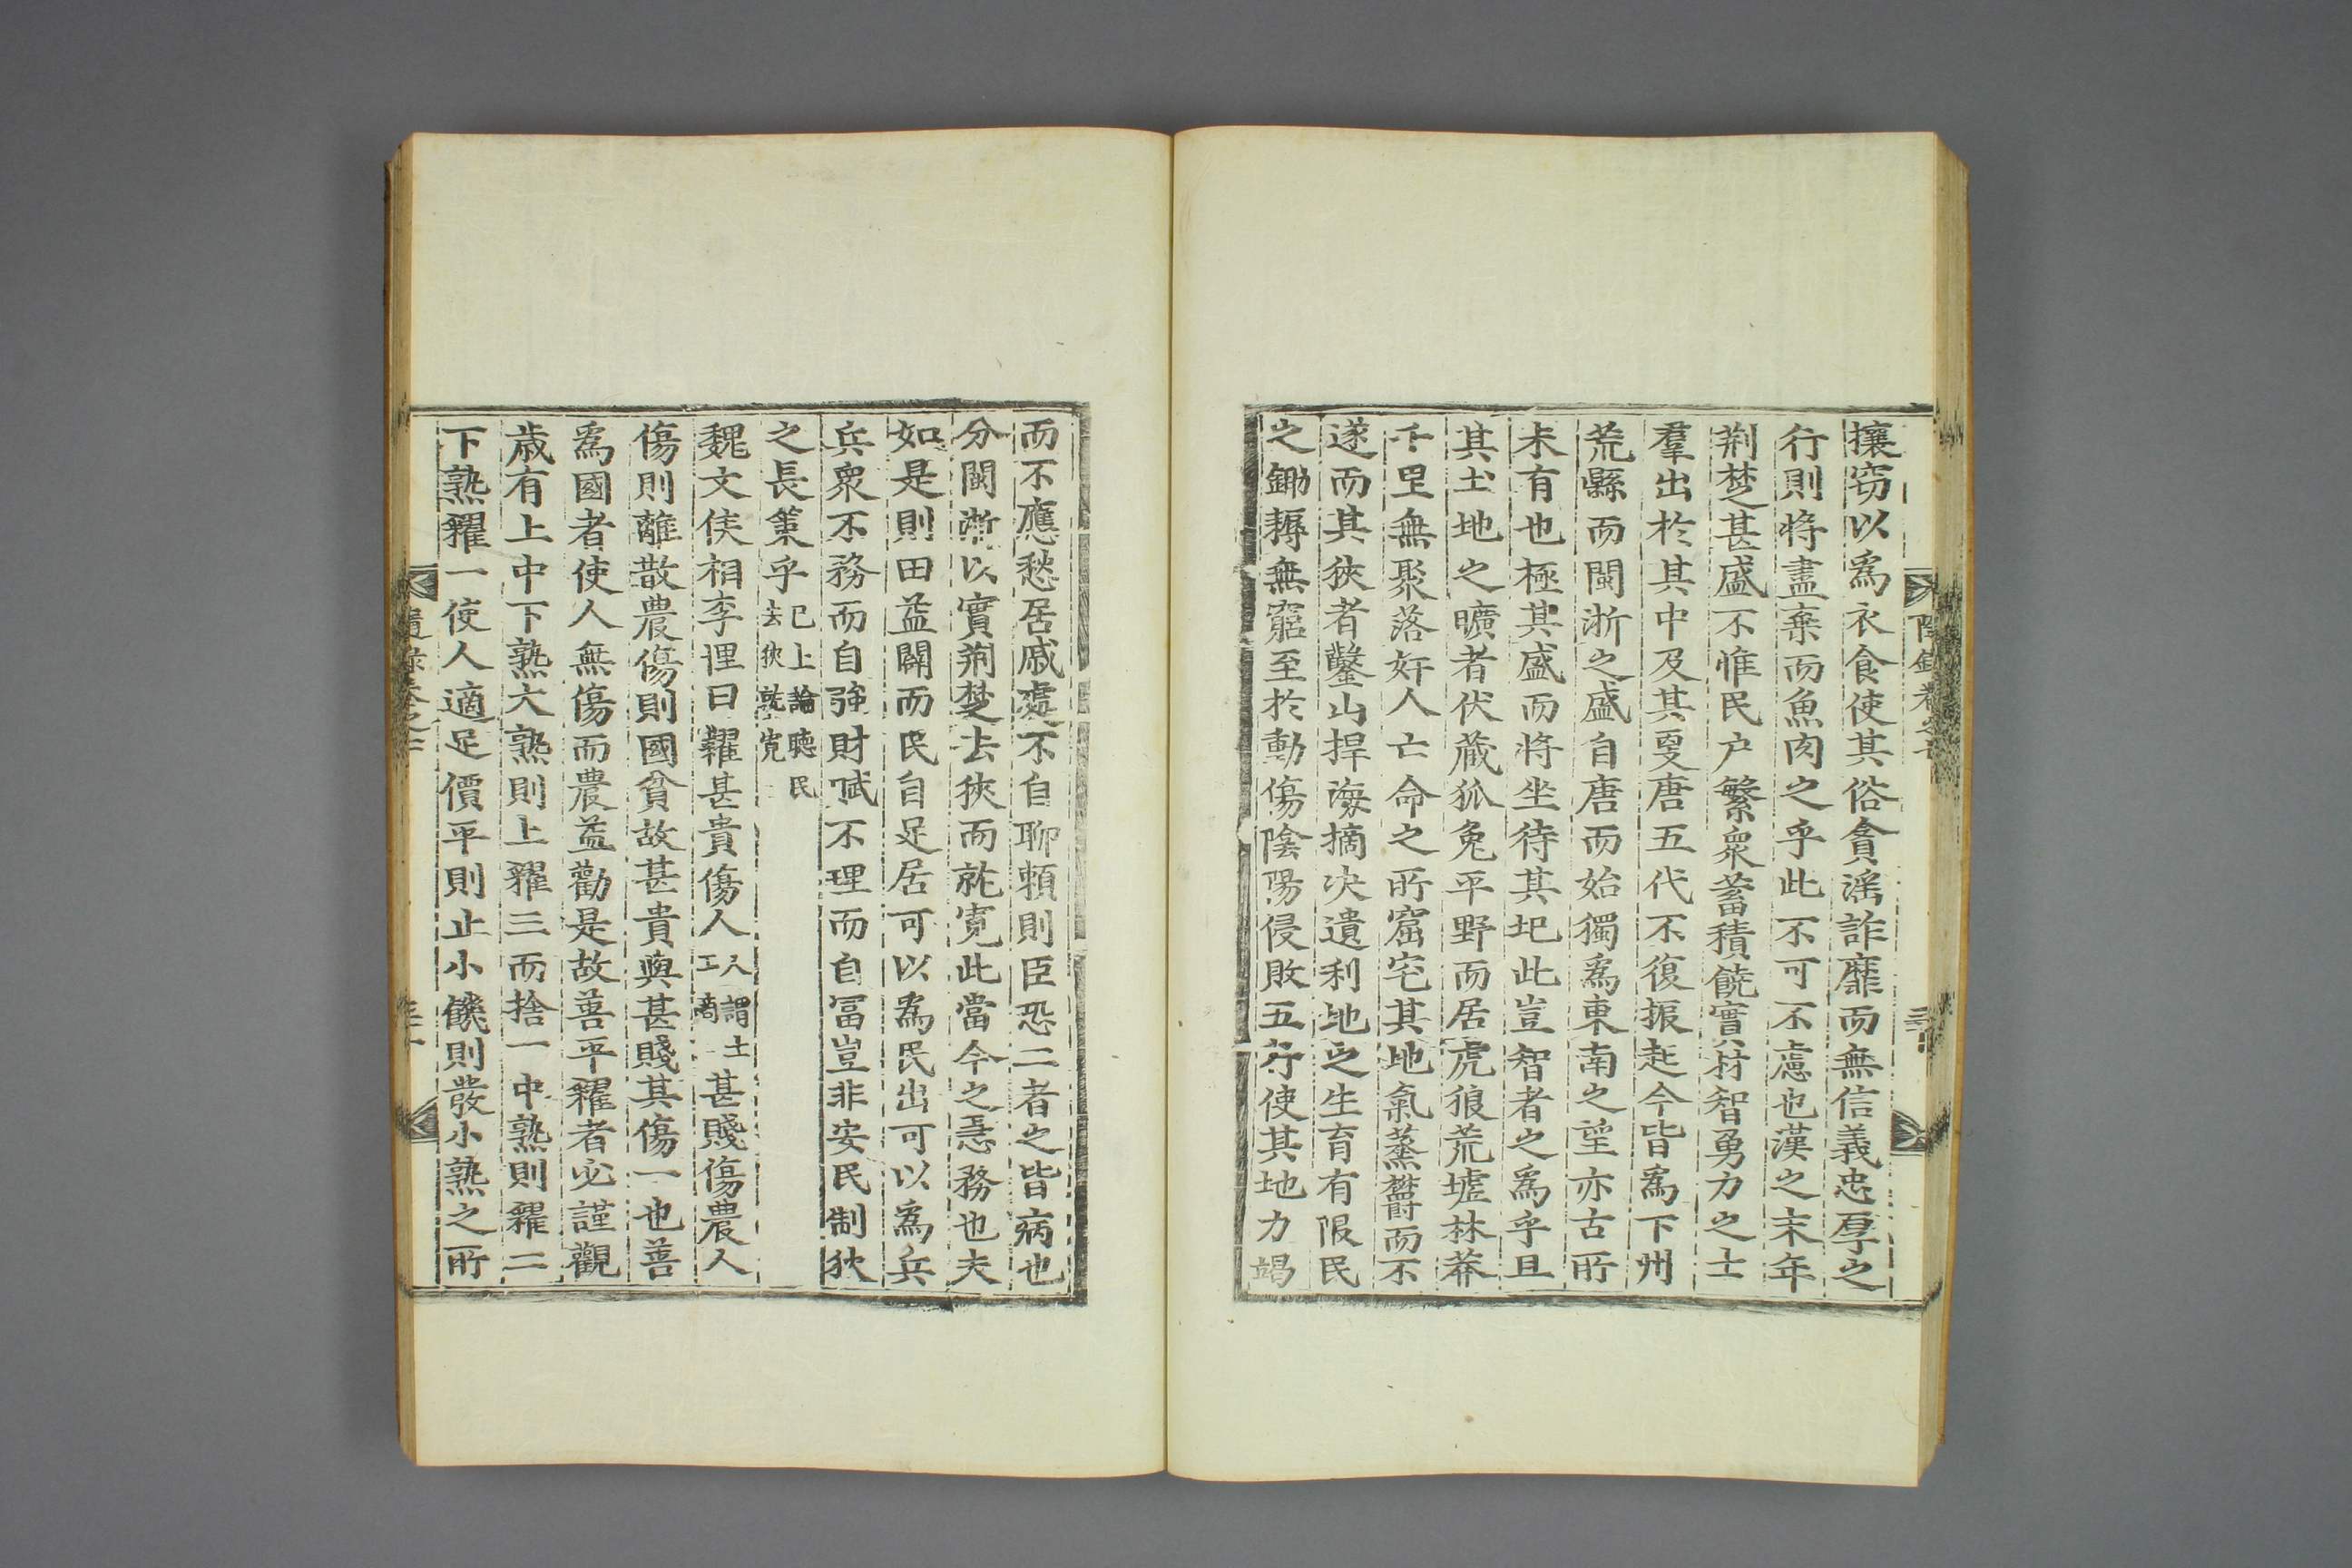 攘窃以爲衣食使其俗貪淫詐靡而無信義忠厚之
行則将盡棄而魚肉之乎此不可不慮也漢之末年
荆楚甚盛不惟民户繁衆蓄積饒實材智勇力之士
羣出於其中及其𠮓唐五代不復振起今皆爲下州
荒縣而閩浙之盛自唐而始獨爲東南之望亦古所
未有也極其盛而将坐待其圯此豈智者之爲乎且
其土地之曠者伏蔵狐兔平野而居虎狼荒墟林莽
千里無聚落奸人亡命之所窟宅其地氣蒸欝而不
遂而其狹者鑿山捍海摘决遺利地之生育有限民
之鋤耨無窮至於動傷陰陽侵敗五行使其地力竭
而不應愁居戚處不自聊頼則臣恐二者之皆病也
分閩浙以實荆楚去狹而就寛此當今之急務也夫
如是則田益闢而民自足居可以爲民出可以爲兵
兵衆不務而自強財賦不理而自冨豈非安民制狄
之長策乎 已上論聽民
去狹就寛
魏文侯相李悝曰糴甚貴傷人 人謂士
工商 甚賤傷農人
傷則離散農傷則國貧故甚貴與甚賤其傷一也善
爲國者使人無傷而農益勸是故善平糴者必謹觀
歳有上中下熟大熟則上糴三而捨一中熟則糴二
下熟糴一使人適足價平則止小饑則發小熟之所